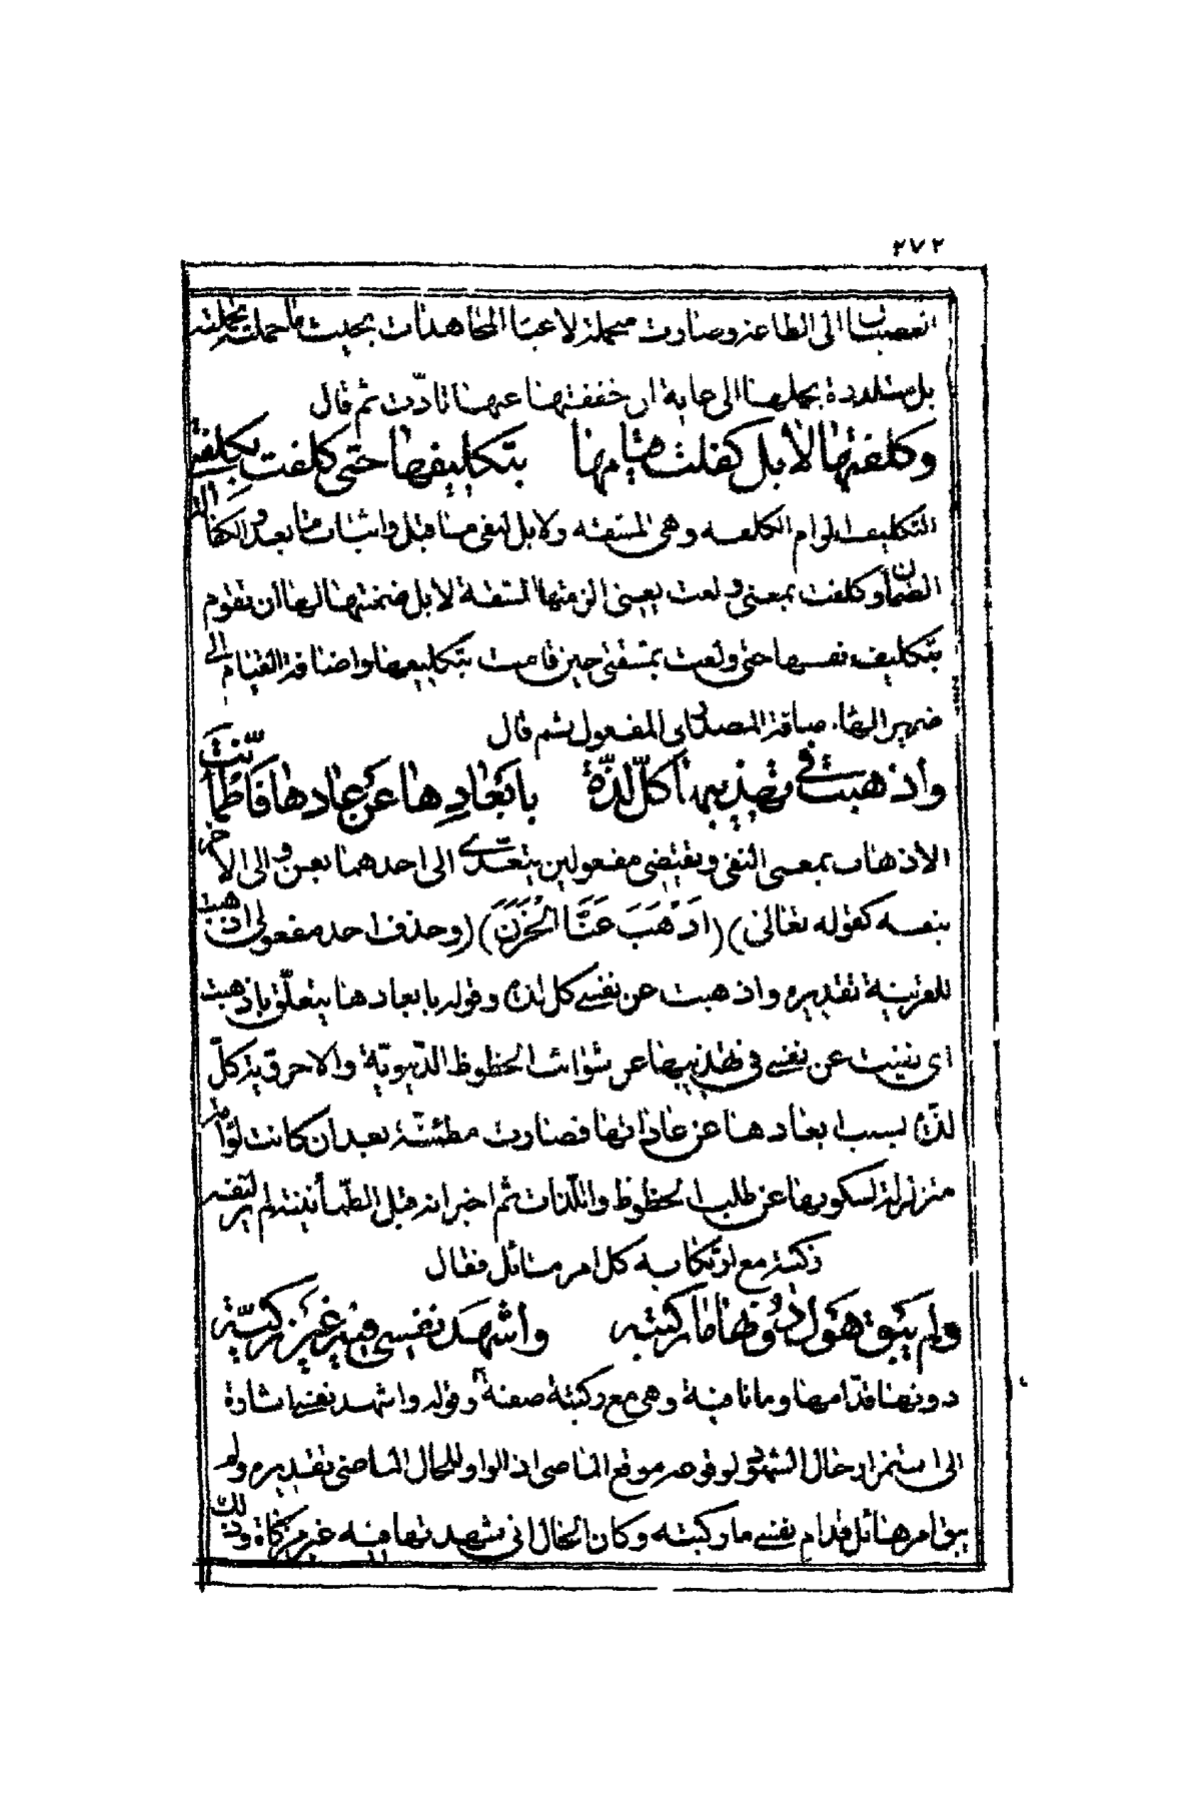 ٢٧٢
العصيان الى الطاعة وصارت متحملة لاعباء المجاهدات بحيث ما حملته تحملته
بل متلذذة بحملها الى غاية ان خففتها عنها تأذّت ثم قال
وكلفتها لا بل كفلت قيامها بتكليفها حتى كلفت بكلفتى
التكليف الزام الكلفة وهى المشقة ولا بل لنفى ما قبل واثبات ما بعد والكفالة
الضمان وكلفت بمعنى ولعت يعنى الزمتها المشقة لا بل ضمنتها لها ان تقوم
بتكليف نفسها حتى ولعت بمشقتى حين قامت بتكليفها واضافة القيام الى
ضمير الهاء اضافة المصدر الى المفعول ثم قال
وأذهبت فى تهذيبها كلّ لذّة بابعادِها عن عادها فاطمأنّت
الاذهاب بمعنى النفى ويقتضى مفعولين يتعدّى الى احدهما بعن والى الاخر
بنفسه كقوله تعالى (اَذْهَبَ عَنَّا الْحَزَنَ) وحذف احد مفعولى اذهبت
للقرينة تقديره واذهبت عن نفسى كل لذة وقوله بابعادها يتعلّق باذهبت
اى نفيت عن نفسى فى تهذيبها عن شوائب الحظوظ الدنيويّة والاخروية كلّ
لذّة بسبب ابعادها عن عاداتها فصارت مطمئنّة بعد ان كانت لوّامة
متزلزلة لسكونها عن طلب الحظوظ واللذات ثم اخبر انه قبل الطمأنينة لم يتقنه
ركبته مع ارتكابه كل امر هائل فقال
ولم يَبق هَول دُونها ما ركبته واشهد نفسى فيه غير زكيّة
دونها قدّامها وما نافية وهى مع ركبته صفة وقوله واشهد نفسى اشارة
الى استمرار حال الشهود لوقوعه موقع الماضى اذ الواو للحال الماضى تقديره ولم
يبق امر هائل قدام نفسى ما ركبته وكان الحال انى شهدتها فيه غير مزكاة وذلك